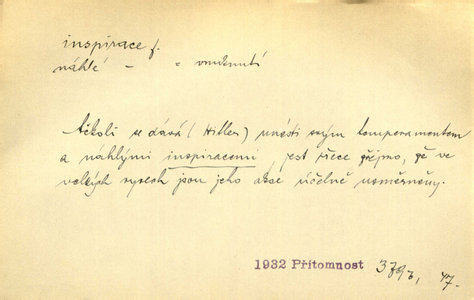 inspirace f.
náhlé – = vnuknutí
Ačkoli se dává (Hitler) unésti svým temperamentem
a náhlými inspiracemi, jest přece zřejmo, že ve
velkých rysech jsou jeho akce účelně usměrněny.
1932 Přítomnost 47.